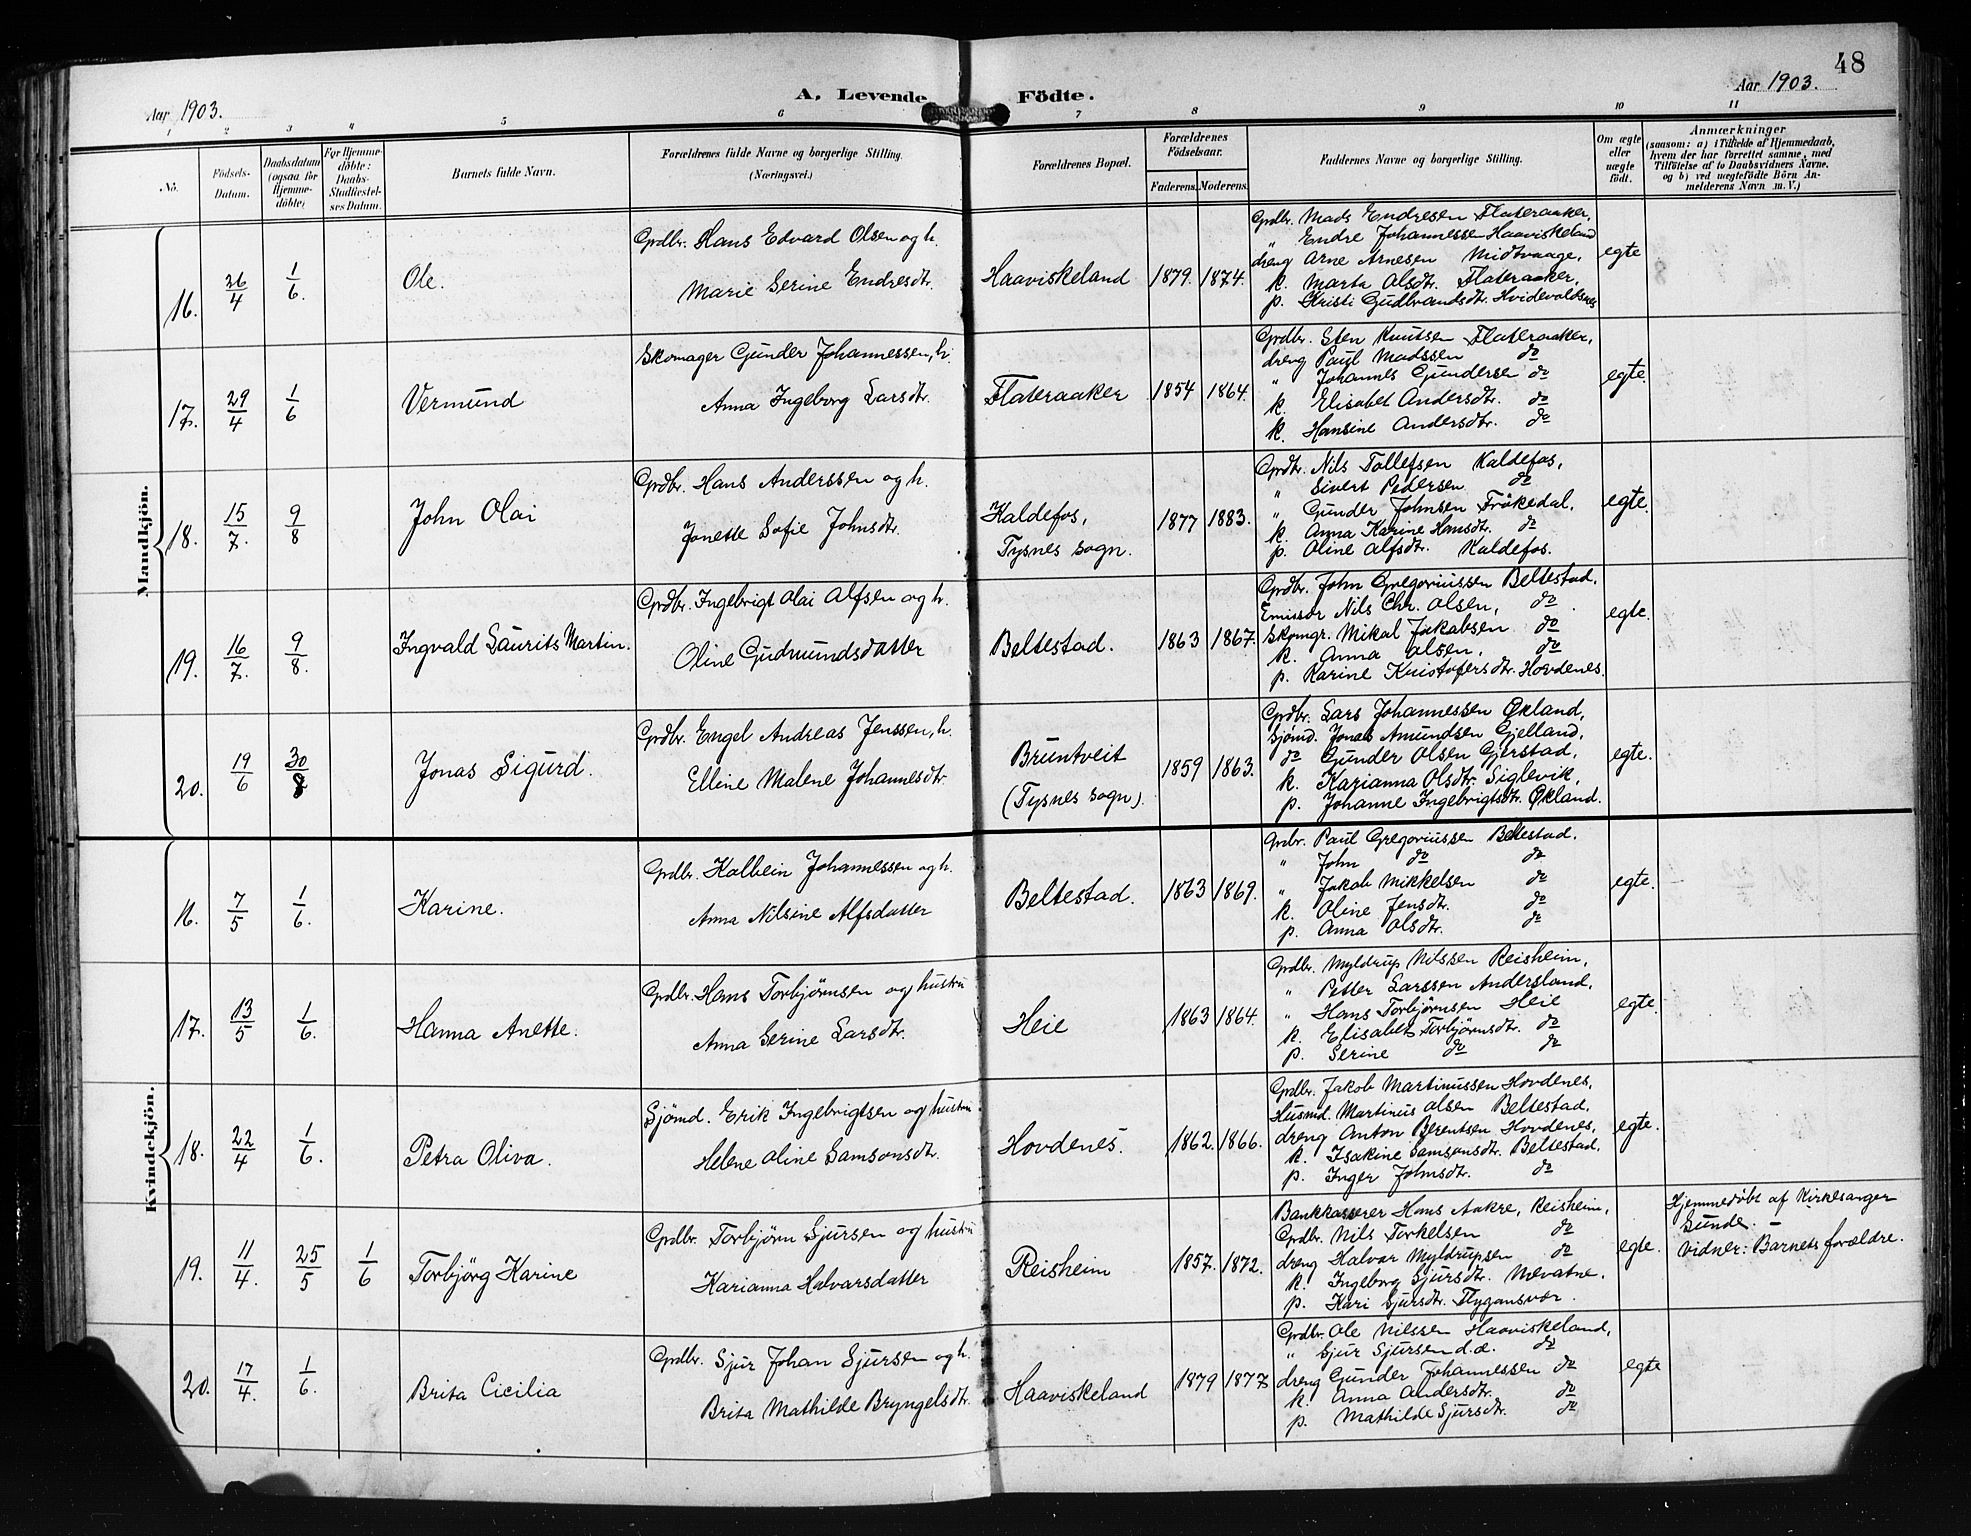 48
Aar 1903.
A. Levende Födte.
Aar 1903.
1 2 3 4 5 6 7 8 9 10 11
No.
Födsels-Datum.
Daabsdatum (ogsaa for Hjemme-döbte)
For Hjemme-döbte: Daabs-Stadfæstel-ses Datum.
Barnets fulde Navn.
Forældrenes fulde Navne og borgerlige Stilling.
(Næringsvei.)
Forældrenes Bopæl.
Forældrenes Födselsaar.
Faderens. Moderens.
Faddernes Navne og borgerlige Stilling.
Om ægte eller uægte födt.
Anmærkninger
(saasom: a) i Tilfælde af Hjemmedaab,
hvem der har forrettet samme, med
Tilföielse af to Daabsvidners Navne.
og b) ved uægtefödte Börn An-
melderens Navn m. V.)
Mandkjön.
16. 26/4 1/6 Ole.
Grdbr. Hans Edvard Olsen og h.
Marie Serine Endresdtr.
Haaviskeland 1879. 1874.
Grdbr. Mads Endresen Flateraaker,
" Endre Johannessen Haaviskeland
dreng Arne Arnesen Midtvaage,
k. Marta Olsdtr. Flateraaker,
p. Kristi Gudbrandsdtr. Hvidevoldsnes
egte
17. 29/4 1/6 Vermund
Skomager Gunder Johannessen, h.
Anna Ingeborg Larsdtr.
Flateraaker 1854 1864.
Grdbr. Sten Knutsen Flateraaker,
dreng Paul Madssen do
" Johannes Gundersen do
k. Elisabet Andersdtr. do
k. Hansine Andersdtr. do
egte.
18. 15/7. 9/8 John Olai
Grdbr. Hans Anderssen og h.
Jonette Sofie Johnsdtr.
Kaldefos,
Tysnes sogn.
1877 1883.
Grdbr. Nils Tollefsen Kaldefos,
" Sivert Pedersen do
" Gunder Johnsen Frøkedal,
k. Anna Karine Hansdtr. do
p. Oline Alfsdtr. Kaldefos.
egte.
19. 16/7. 9/8. Ingvald Laurits Martin.
Grdbr. Ingebrigt Olai Alfsen og h.
Oline Gudmundsdatter
Beltestad. 1863 1867.
Grdbr. John Gregoriussen Beltestad,
Emissør Nils Chr. Olsen, do
Skomgr. Mikal Jakobsen do
k. Anna Olsen, do
p. Karine Kristofersdtr. Hovdenes.
egte.
20. 19/6 30/8 Jonas Sigurd.
Grdbr. Engel Andreas Jenssen, h.
Elline Malene Johannesdtr.
Bruntveit
(Tysnes sogn).
1859 1863.
Grdbr. Lars Johannessen Økland,
Sjømd. Jonas Amundsen Gjelland,
do Gunder Olsen Gjerstad,
k. Karianna Olsdtr. Siglevik,
p. Johanne Ingebrigtsdtr. Økland.
egte.
Kvindekjön.
16. 7/5 1/6. Karine.
Grdbr. Kolbein Johannessen og h.
Anna Nilsine Alfsdatter
Beltestad. 1863 1869.
Grdbr. Paul Gregoriussen Beltestad.
" John do do
" Jakob Mikkelsen do
k. Oline Jensdtr. do
p. Anna Olsdtr. do
egte.
17. 13/5 1/6. Hanna Anette.
Grdbr. Hans Torbjørnsen og hustru
Anna Serine Larsdtr.
Heie 1863 1864.
Grdbr. Myldrup Nilssen Reisheim,
" Petter Larssen Andersland,
" Hans Torbjørnsen Heie
k. Elisabet Torbjørnsdtr. do
p. Serine do do
egte.
18. 22/4 1/6. Petra Oliva.
Sjømd. Erik Ingebrigtsen og hustru
Helene Oline Samsonsdtr.
Hovdenes. 1862. 1866.
Grdbr. Jakob Martinussen Hovdenes,
Husmd. Martinus Olsen Beltestad,
dreng Anton Berentsen Hovdenes,
k. Isakine Samsonsdtr. Beltestad,
p. Inger Johnsdtr. do
egte.
19. 11/4. 25/5 1/6 Torbjörg Karine
Grdbr. Torbjørn Sjursen og hustru
Karianna Halvarsdatter
Reisheim 1857. 1872.
Bankkasserer Hans Aakre, Reisheim,
Grdbr. Nils Torkelsen do
dreng Halvar Myldrupsen do
k. Ingeborg Sjursdtr. Mevatne,
p. Kari Sjursdtr. Flygansvær.
egte.
Hjemmedøbt af Kirkesanger
Sunde.
Vidner: Barnets forældre.
20. 17/4. 1/6. Brita Cicilia
Grdbr. Sjur Johan Sjursen og h.
Brita Mathilde Bryngelsdtr.
Haaviskeland 1879 1877
Grdbr. Ole Nilssen Haaviskeland,
" Sjur Sjursen d.æ. do
dreng Gunder Johannessen do
k. Anna Andersdtr. do
p. Mathilde Sjursdtr. do
egte